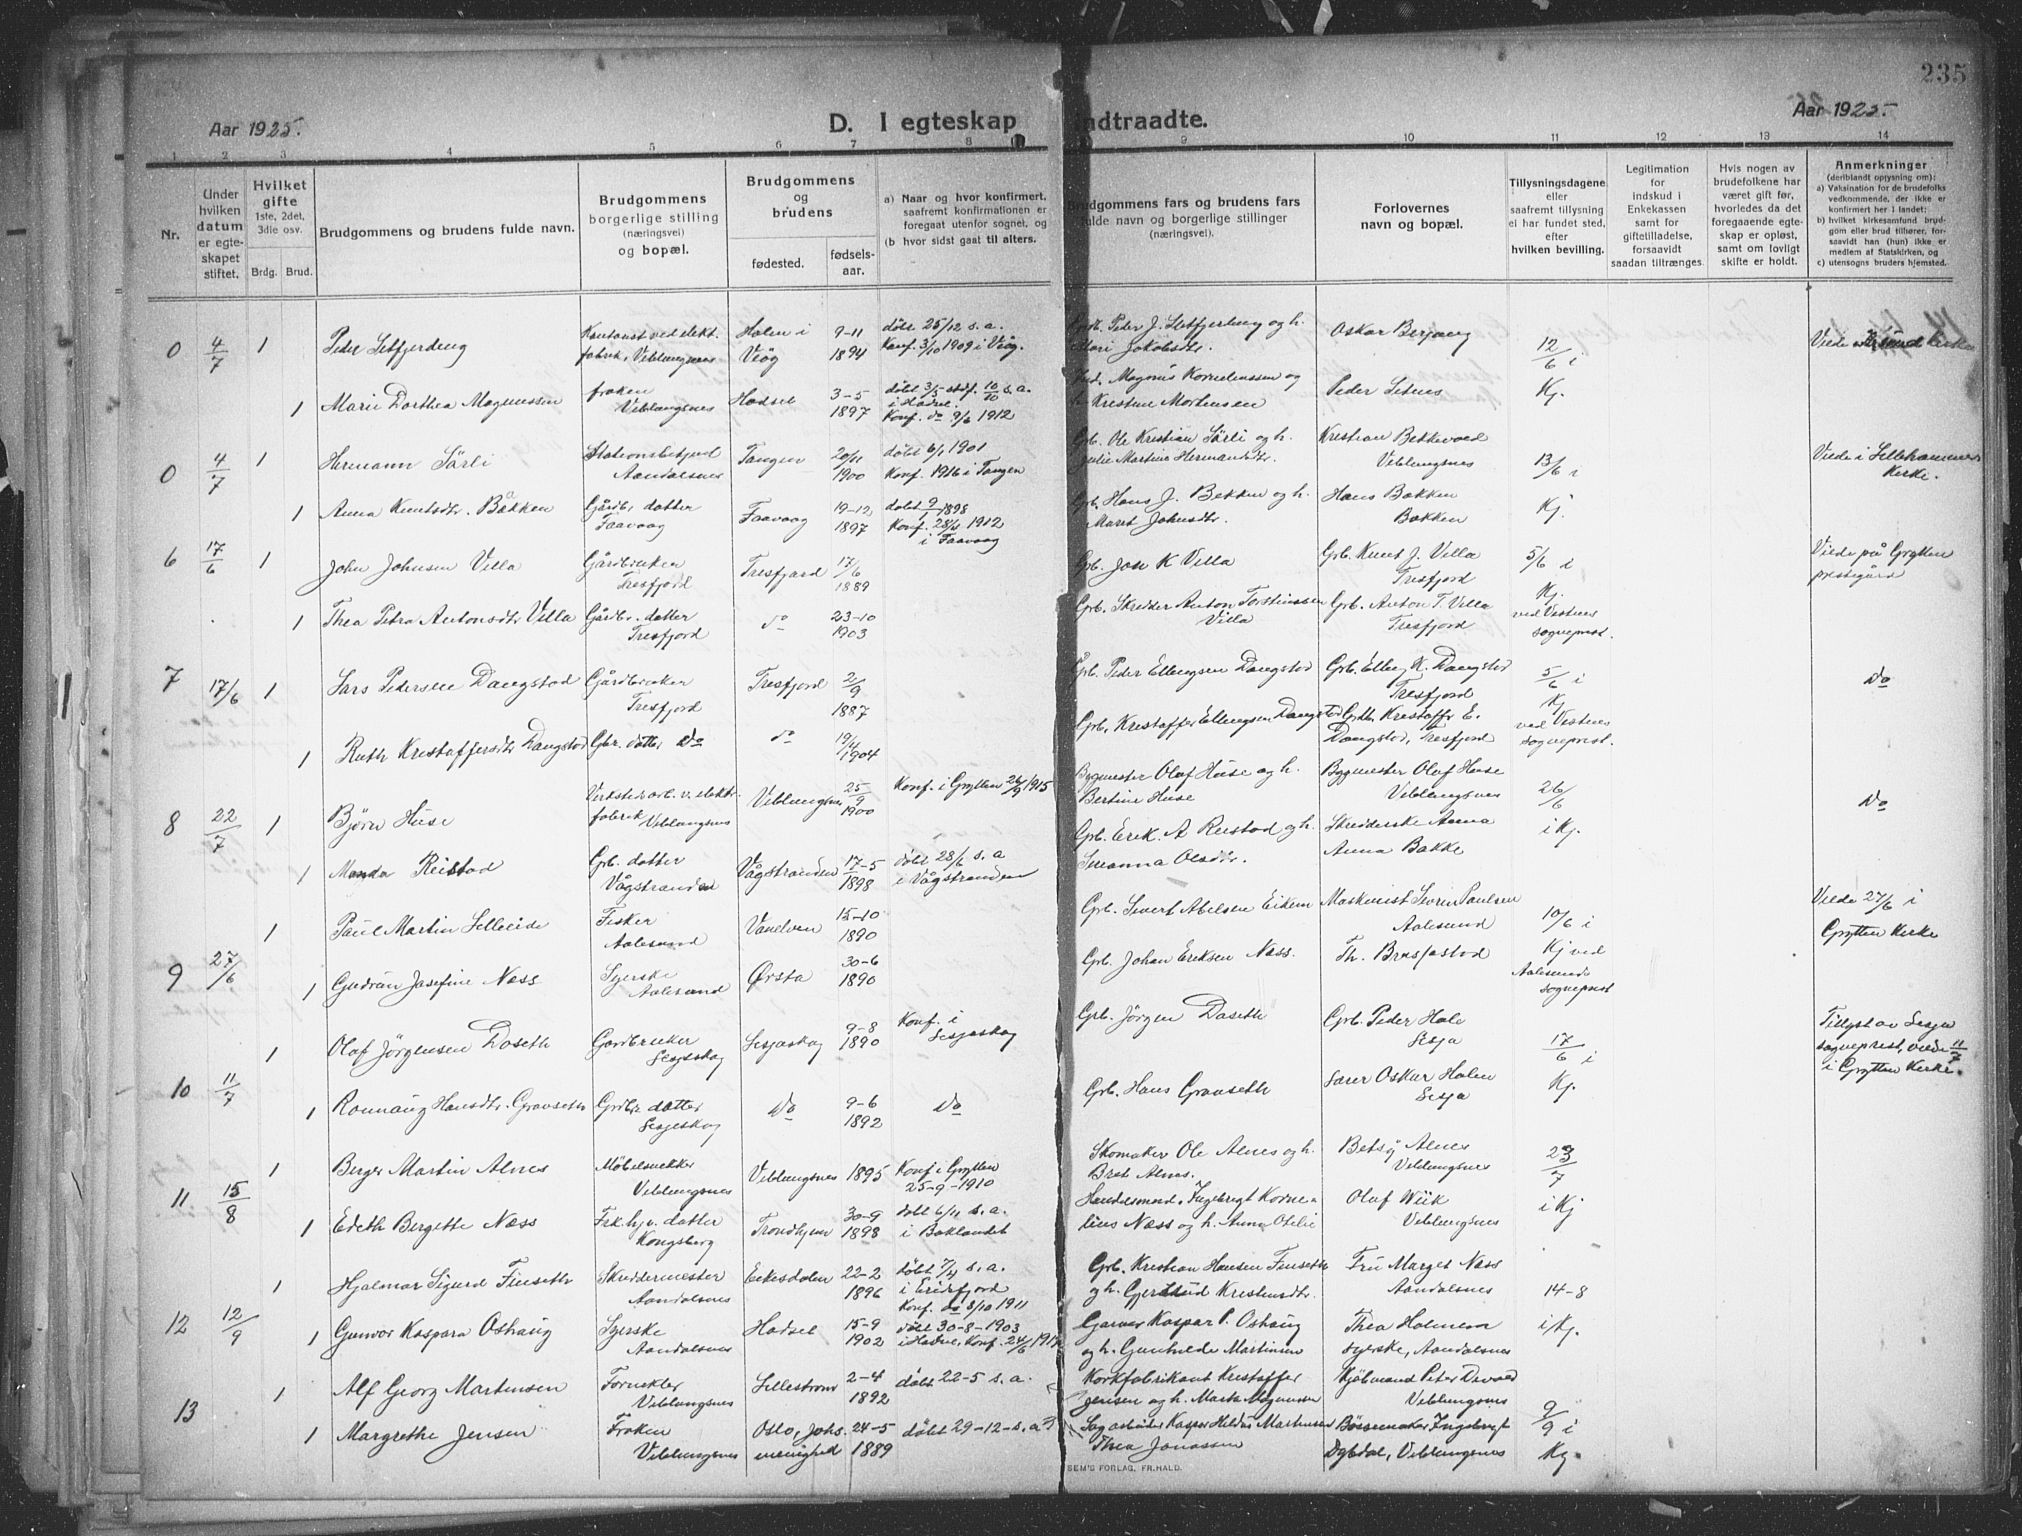 235
Aar 1925.
D. I egteskap indtraadte.
Aar 1925.
1 2 3 4 5 6 7 8 9 10 11 12 13 14
Nr.
Under hvilken datum er egteskapet stiftet.
Hvilket gifte 1ste, 2det, 3die osv.
Brdg. Brud.
Brudgommens og brudens fulde navn.
Brudgommens borgerlige stilling (næringsvei) og bopæl.
Brudgommens og brudens
fødested.
fødselsaar.
a) Naar og hvor konfirmert, saafremt konfirmationen er foregaat utenfor sognet, og
(b hvor sidst gaat til alters.
Brudgommens fars og brudens fars fulde navn og borgerlige stillinger (næringsvei).
Forlovernes navn og bopæl.
Tillysningsdagene eller saafremt tillysning ei har fundet sted, efter hvilken bevilling.
Legitimation for indskud i Enkekassen samt for giftetilladelse, forsaavidt saadan tiltrænges.
Hvis nogen av brudefolkene har været gift før, hvorledes da det foregaaende egteskap er opløst, samt om lovligt skifte er holdt.
Anmerkninger (deriblandt opjysning om):
a) Vaksination for de brudefolks vedkommende, der ikke er konfirmert her i landet;
b) hvilket kirkesamfund brudgom eller brud tilhører, forsaavidt han (hun) ikke er medlem af Statskirken, og
c) utensogns bruders hjemsted.
0 4/7 1 Peder Setfjerding
fabrik, Veblungsnes
Holen i Veøy 9-11 1894
døbt 25/12 s. a.
Konf. 3/10 1909 i Veøy.
Peder J. Setfjerding og h.
Mari Jakobsdtr.
12/6 i
1 Marie Dorthea Magnussen
frøken Veblungsnes
Hadsel 3-5 1897
Konf. do 9/6 1912
Kristine Mortensen
Peder Setnes
Kj.
0 4/7 1 Hermann Sørli
Aandalsnes
Tangen 20/11 1900
døbt 6/1 1901
Konf. 1916 i Tangen
Grb. Ole Kristian Sørli og h.
Julie Martine Hermansdtr.
Veblungsnes
13/6 i
Viede i Lillehammer Kirke.
1 Anna Knutsdtr. Bakken
Gårdbr. datter
Faavaag
Faavaag 19-12 1897
døbt 9/1 1898
Konf. 28/4 1912
i Faavaag
Grb. Hans J. Bekken og h.
Maret Johnsdtr.
Hans Bakken
Bakken
Kj.
6 17/6 1 John Johnsen Villa
Gårdbruker
Tresfjord
Tresfjord 17/6 1889
Grb. John K Villa
Grb. Knut J. Villa
Tresfjord
5/6 i
Viede på Grytten prestegård
1 Thea Petra Antonsdtr Villa
Gårdbr. datter
Tresfjord
do 23-10 1903
Grb. Skredder Anton Torstinssen Villa
Grb. Anton T. Villa
Tresfjord
Kj. ved Vestnes sogneprest.
7 17/6 1 Lars Pedersen Dangstad
Gårdbruker
Tresfjord
Tresfjord 2/9 1887
Grb. Peder Ellingsen Dangstad
Grb. Elling K. Dangstad
Tresfjord
5/6 i
do
1 Ruth Kristaffersdtr Dangstad
Gbr. datter do
do 19/4 1904
Grb. Kristaffer Ellingsen Dangstad
Grb. Kristaffr E. Dangstad, Tresfjord
Kj ved Vestnes sogneprest.
8 22/7 1 Bjørn Huse
Verkstedarb. v. elektr. fabrik Veblungsnes
Veblungsnes 25/9 1900
Konf. i Grytten 26/9 1915
Bygmester Olaf Huse og h.
Bertine Huse
Bygmester Olaf Huse
Veblungsnes
26/6
do
1 Manda Reistad
Grb. datter
Vågstranden
Vågstranden 17-5 1898
døbt 28/6 s. a
i Vågstranden
Grb. Erik. A Reistad og h.
Susanna Olsdtr.
Anna Bakke
i Kj.
9 27/6 1 Paul Martin
Fisker
Aalesund
Vanelven 15-10 1890
Grb. Sivert Abelsen Eikem
Maskinist Severin Paulsen
Aalesund
10/6 i
Viede 27/6 i Grytten Kirke
1 Gudrun Josefine Næss
Syerske
Aalesund
Ørsta 30-6 1890
Grb. Johan Eriksen Næss.
Kj ved Aalesunds sogneprest
10 11/7 1 Olaf Jørgensen Daseth
Gardbruker
Lesjaskog
Lesjaskog 9-8 1890
Konf. i Lesjaskog
Grb. Jörgen Daseth
Grb. Peder Hole
Lesja
17/6 i
Tillyst av Lesja sogneprest, viede 11/7 i Grytten Kirke.
1 Ronnaug Hansdtr. Gravseth
Grdbr. datter
Lesjeskog
do 9-6 1892
do
Grb. Hans Gravseth
Lærer Oskar Holen
Lesja
Kj.
11 15/8 1 Berger Martin Alnes
Møbelsnekker
Veblungsnes
Veblungsnes 1895
Konf i Grytten
25-9-1910
Skomaker Ole Alnes og h.
Brit Alnes.
Betsy Alnes
Veblungsnes
23/7
1 Edith Bergette Næss
Kongsberg
Trondhjem 30-9 1898
døbt 6/11 s. a.
i Baklandet
Handelsmand Ingebrigt Kornelius Næss og h. Anna Otelie
Olaf Wiik
Veblungsnes
i Kj
12 12/9 1 Hjalmar Sigurd Finseth
Skreddermester
Aandalsnes
Eikisdalen 22-2 1896
døbt 7/4 s. a.
i Eridsfjord
Konf. do 8/10 1911
Grb. Kristian Hansen Finseth
og h. Gjertrud Kristensdtr.
Fru Marget Næss
Aandalsnes
14-8
1 Gunvor Kaspara Oshaug
Syerske
Aandalsnes
Hadsel 15-9 1902
døbt 30-8-1903
Garver Kaspar P. Oshaug
og h. Gunhilde Martinsen
Thea Holmem
syerske, Aandalsnes
i Kj.
13 1 Alf Georg Martinsen
Fornikler
Veblungsnes
Lillestrøm 2-4 1892
døbt 22-5 s. a.
Korkfabrikant Kristoffer
Jensen og h. Marta Magnussen
Kjøbmand Peter Devold
Veblungsnes
9/9 i
1 Margrethe Jensen
Frøken
Veblungsnes
Oslo, Johs. menighed 24-5 1889
døbt 29-12-s. a.
Sagarbeider Kaspar Heldus Martinsen
Thea Jonassen
Bössemaker Ingebrigt
Dybdal, Veblungsnes
Kj.
SEM'S FORLAG, FR.HALD.